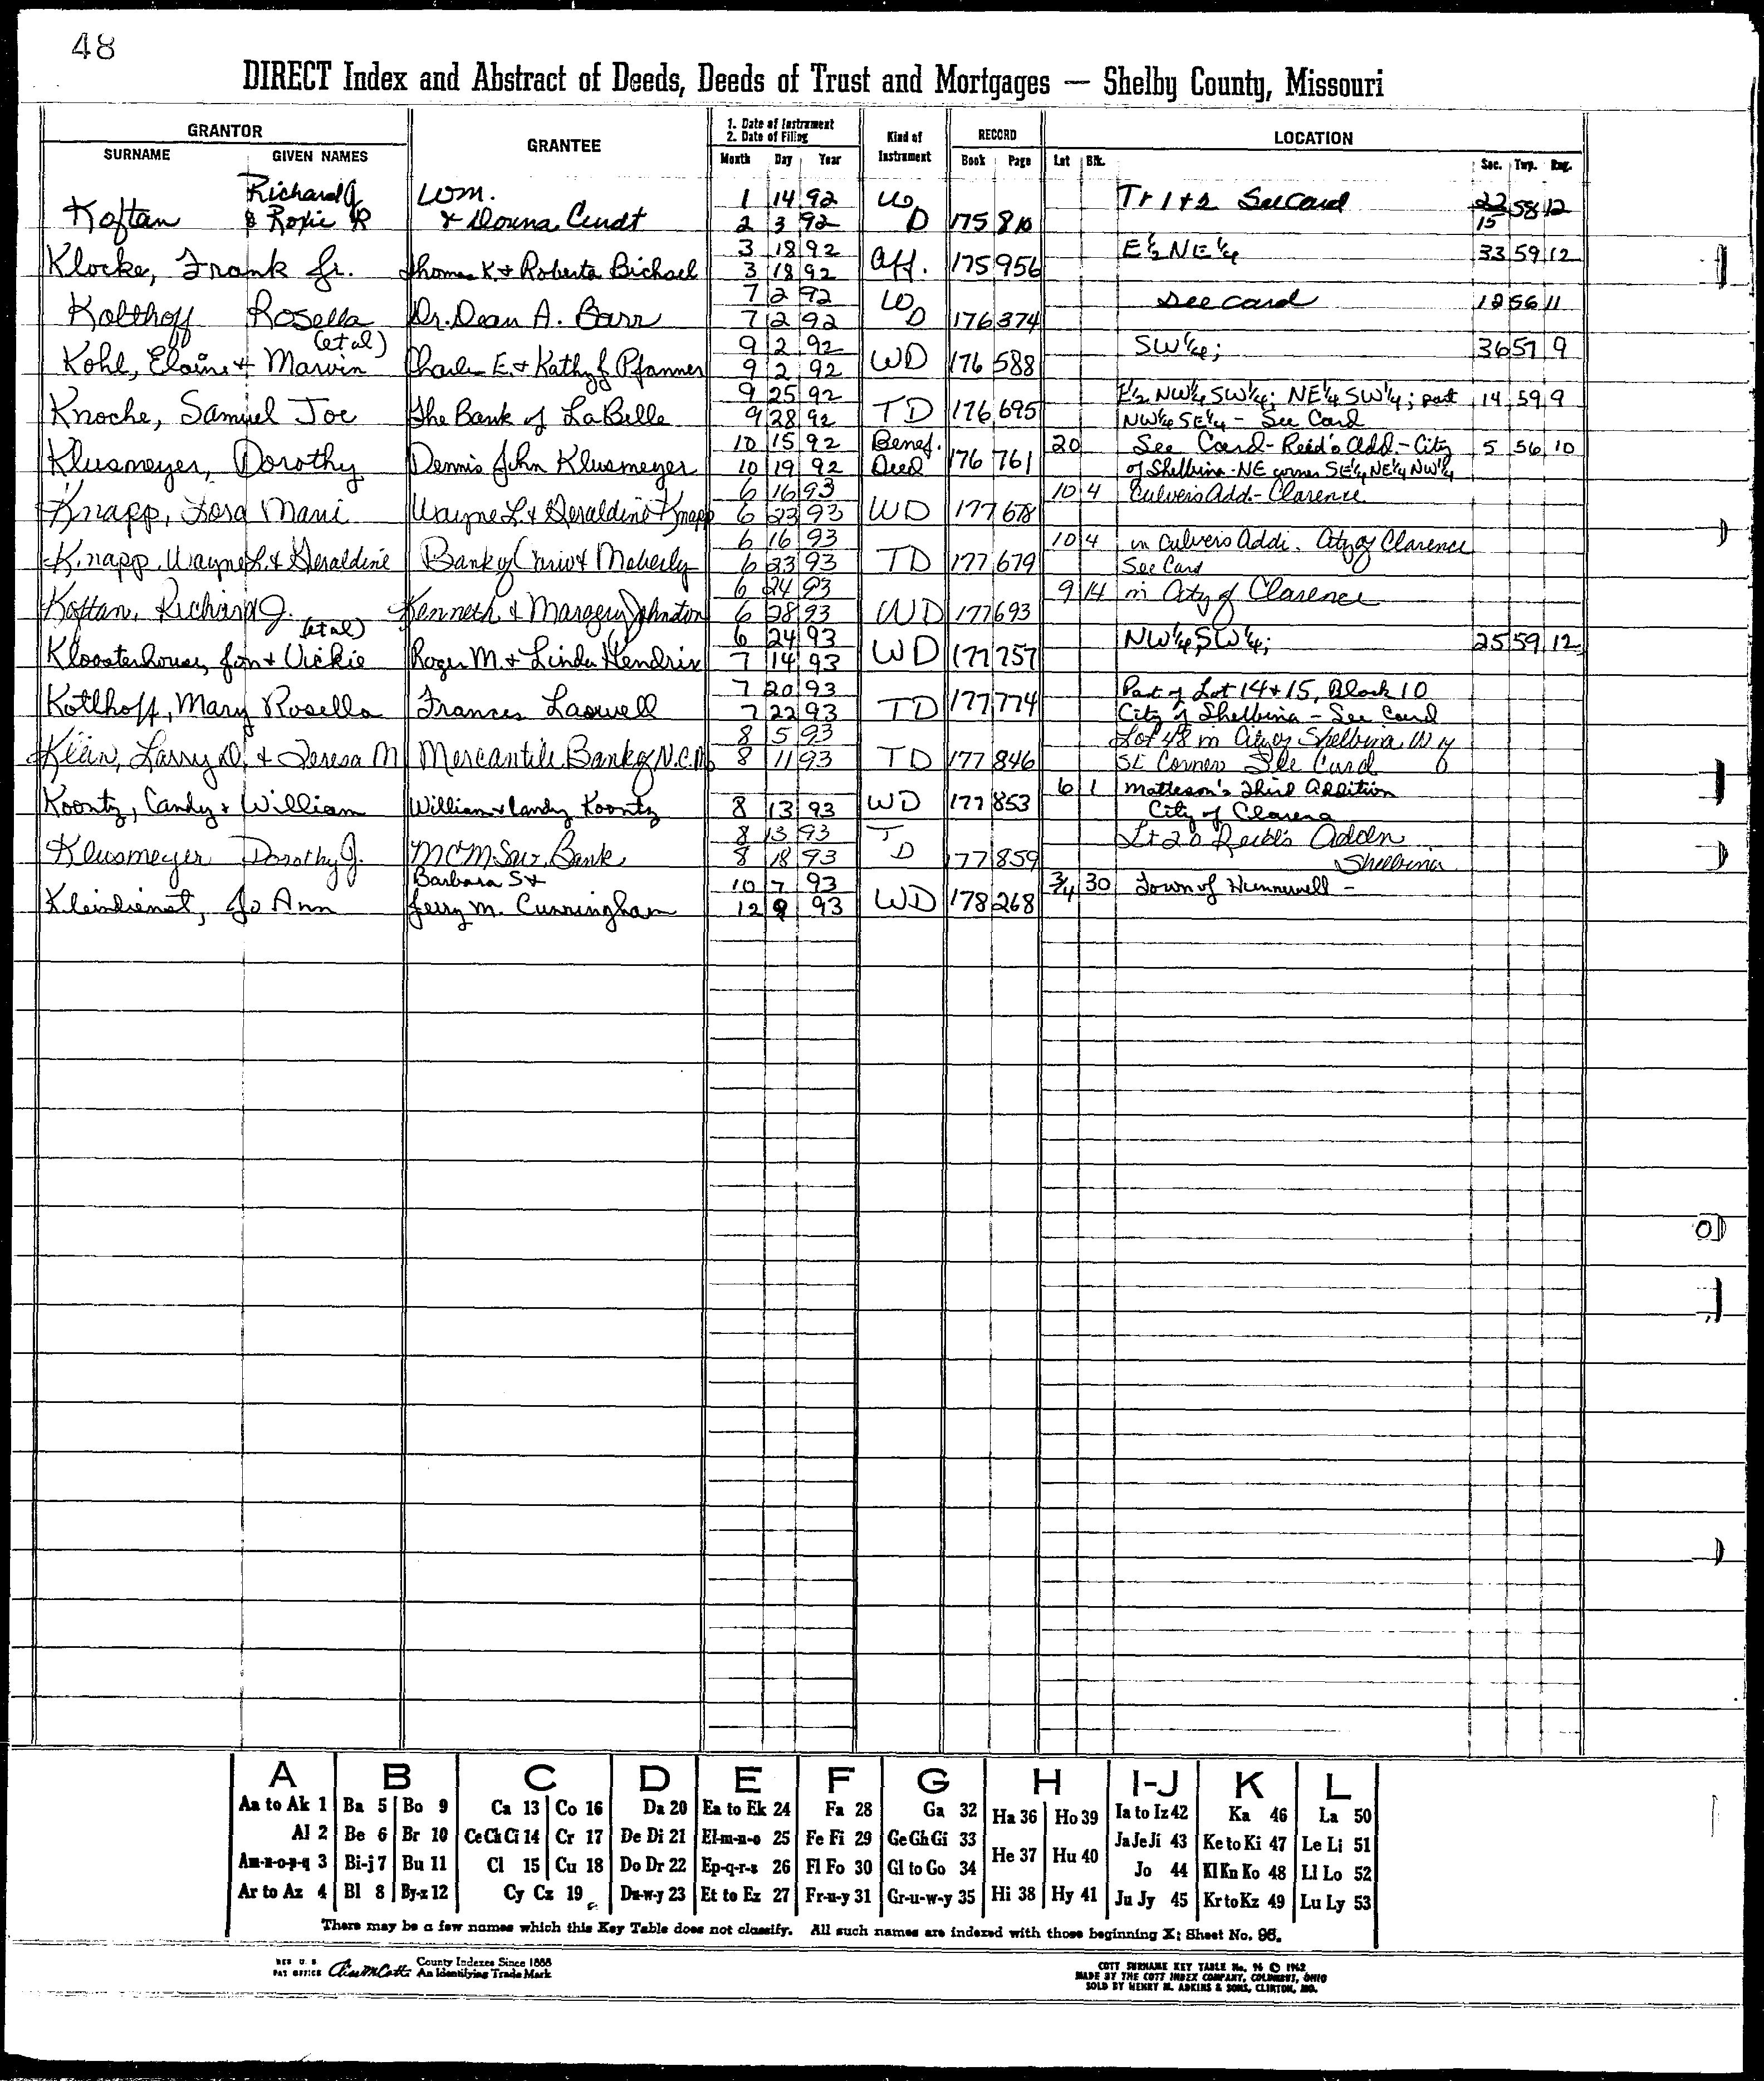 48
DIRECT Index and Abstract of Deeds, Deeds of Trust and Mortgages — Shelby County, Missouri
GRANTOR GRANTEE 1. Date of Instrument 2. Date of Filing Kind of Instrument RECORD LOCATION
SURNAME GIVEN NAMES Month Day Year Book Page Lot Blk. Sec. Twp. Rng.
Richard J. Wm. 1 14 92 W Tr 1 + 2 See Card 22 58 12
Koftan & Roxie R & Donna Cundt 2 3 92 D 175 810 15
3 18 92 E½ NE¼ 33 59 12
Klocke, Frank Jr. Thomas K. & Roberta Bichsel 3 18 92 Aff. 175 956
7 2 92 W See card 56 11
Kolthoff Rosella Dr. Dean A. Barr 7 2 92 D 176 374
(et al) 9 2 92 SW¼; 36 57 9
Kohl, Elaine + Marvin Charles E. & Kathy J. Pfanner 9 2 92 WD 176 588
9 25 92 E½ NW¼ SW¼; NE¼ SW¼; part 14 59 9
Knoche, Samuel Joe The Bank of LaBelle 9 28 92 TD 176 695 NW¼ SE¼ - See Card
10 15 92 Benef. 20 See Card - Reid's Add. - City 5 56 10
Klusmeyer, Dorothy Dennis John Klusmeyer 10 19 92 Deed 176 761 of Shelbina - NE corner SE¼ NE¼ NW¼
6 16 93 10 4 Culvers Add. - Clarence
Knapp, Lora Mani Wayne L. & Geraldine Knapp 6 23 93 WD 177 678
6 16 93 10 4 in Culvers Addi. City of Clarence
Knapp, Wayne L. & Geraldine Bank of Cairo & Moberly 6 23 93 TD 177 679 See Card
6 24 93 9 14 in City of Clarence
Koftan, Richard J. Kenneth & Margery Johnston 6 28 93 WD 177 693
(et al) 6 24 93 NW¼, SW¼; 25 59 12
Kloosterhouse, Jon + Vickie Roger M. & Linda Hendrix 7 14 93 WD 177 757
7 20 93 Part of Lot 14 + 15, Block 10
Kotlhoff, Mary Rosella Frances Laswell 7 22 93 TD 177 774 City of Shelbina - See Card
8 5 93 Lot 48 in City of Shelbina W of
Klein, Larry D. & Teresa M Mercantile Bank of N.C. Mo 8 11 93 TD 177 846 SE Corner See Card
6 1 Matteson's Third Addition
Koontz, Candy + William William + Candy Koontz 8 13 93 WD 177 853 City of Clarence
8 13 93 T Lt 20 Reid's Addn
Klusmeyer Dorothy J. MCM Sav. Bank 8 18 93 D 177 859 Shelbina
Barbara S + 10 7 93 3/4 30 Town of Hunnewell -
Kleindienst, Jo Ann Jerry M. Cunningham 12 9 93 WD 178 268
A B C D E F G H I-J K L
Aa to Ak 1 Ba 5 Bo 9 Ca 13 Co 16 Da 20 Ea to Ek 24 Fa 28 Ga 32 Ha 36 Ho 39 Ia to Iz 42 Ka 46 La 50
Al 2 Be 6 Br 10 Ce Ch Ci 14 Cr 17 De Di 21 El-m-n-o 25 Fe Fi 29 Ge Gh Gi 33 He 37 Hu 40 Ja Je Ji 43 Ke to Ki 47 Le Li 51
Am-n-o-p-q 3 Bi-j 7 Bu 11 Cl 15 Cu 18 Do Dr 22 Ep-q-r-s 26 Fl Fo 30 Gl to Go 34 Jo 44 Kl Kn Ko 48 Ll Lo 52
Ar to Az 4 Bl 8 By-z 12 Cy Cz 19 Du-w-y 23 Et to Ez 27 Fr-u-y 31 Gr-u-w-y 35 Hi 38 Hy 41 Ju Jy 45 Kr to Kz 49 Lu Ly 53
There may be a few names which this Key Table does not classify. All such names are indexed with those beginning X; Sheet No. 96.
REG U. S. PAT OFFICE County Indexes Since 1888 An Identifying Trade Mark
COTT SURNAME KEY TABLE No. 96 © 1962
MADE BY THE COTT INDEX COMPANY, COLUMBUS, OHIO
SOLD BY HENRY M. ADKINS & SONS, CLINTON, MO.